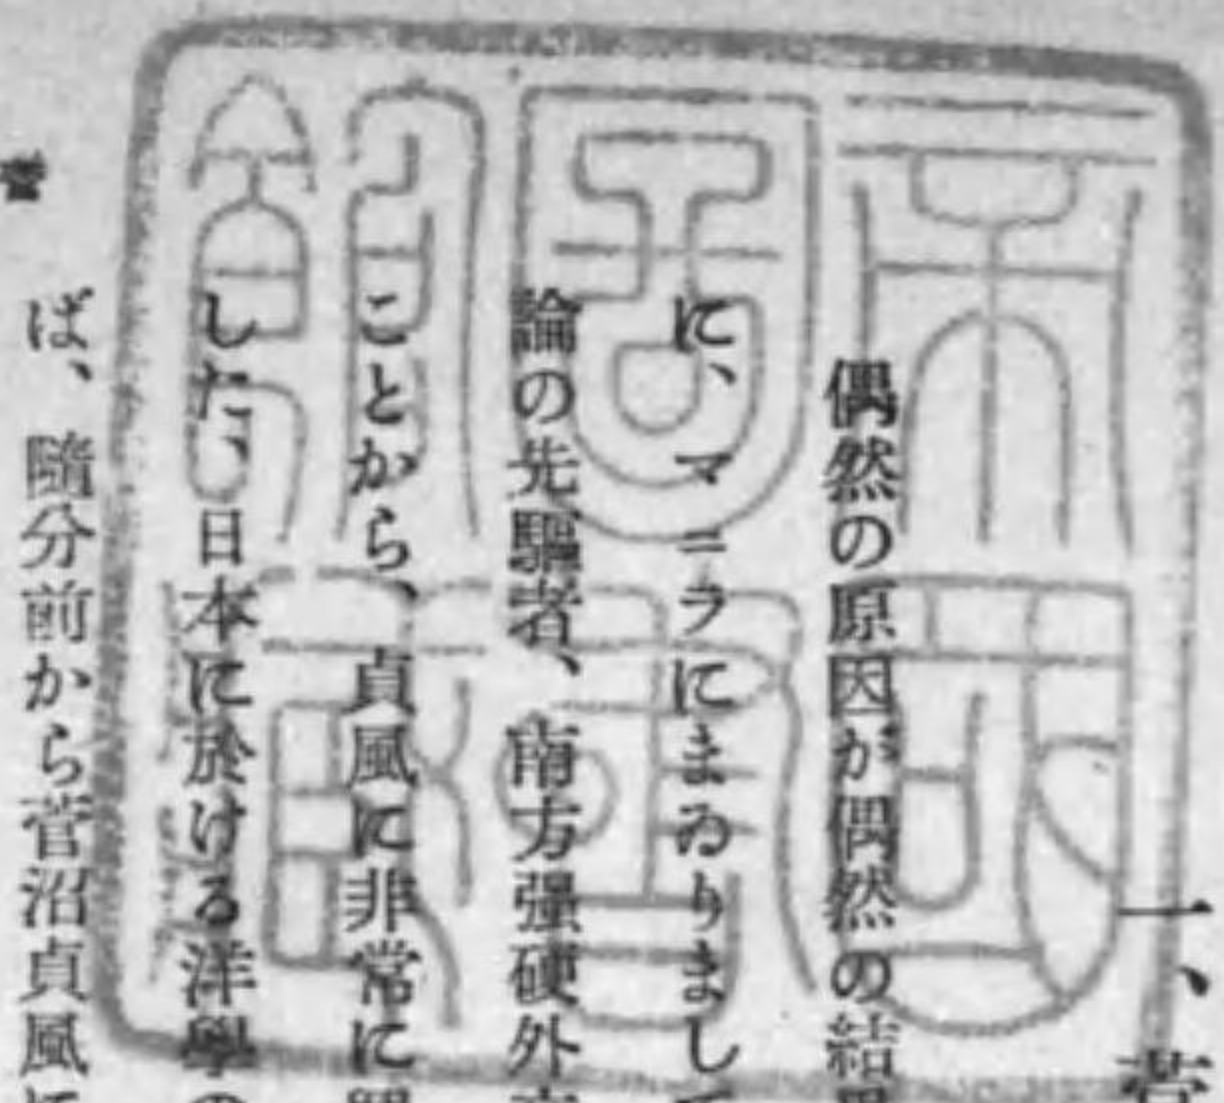 一、菅
偶然の原因が偶然の結果
に、マニラにまゐりまして
論の先驅者、南方强硬外
ことから、貞風に非常に
した、日本に於ける洋學の
ば、隨分前から菅沼貞風に
帝國
圖書
館藏